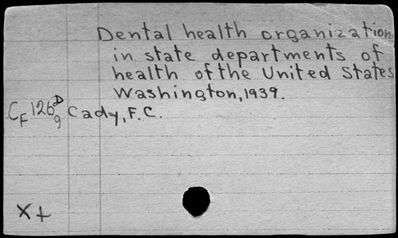 Dental health organization
in state departments of
health of the United States
Washington, 1939.
CF 126 D
9
Cady, F.C.
X+